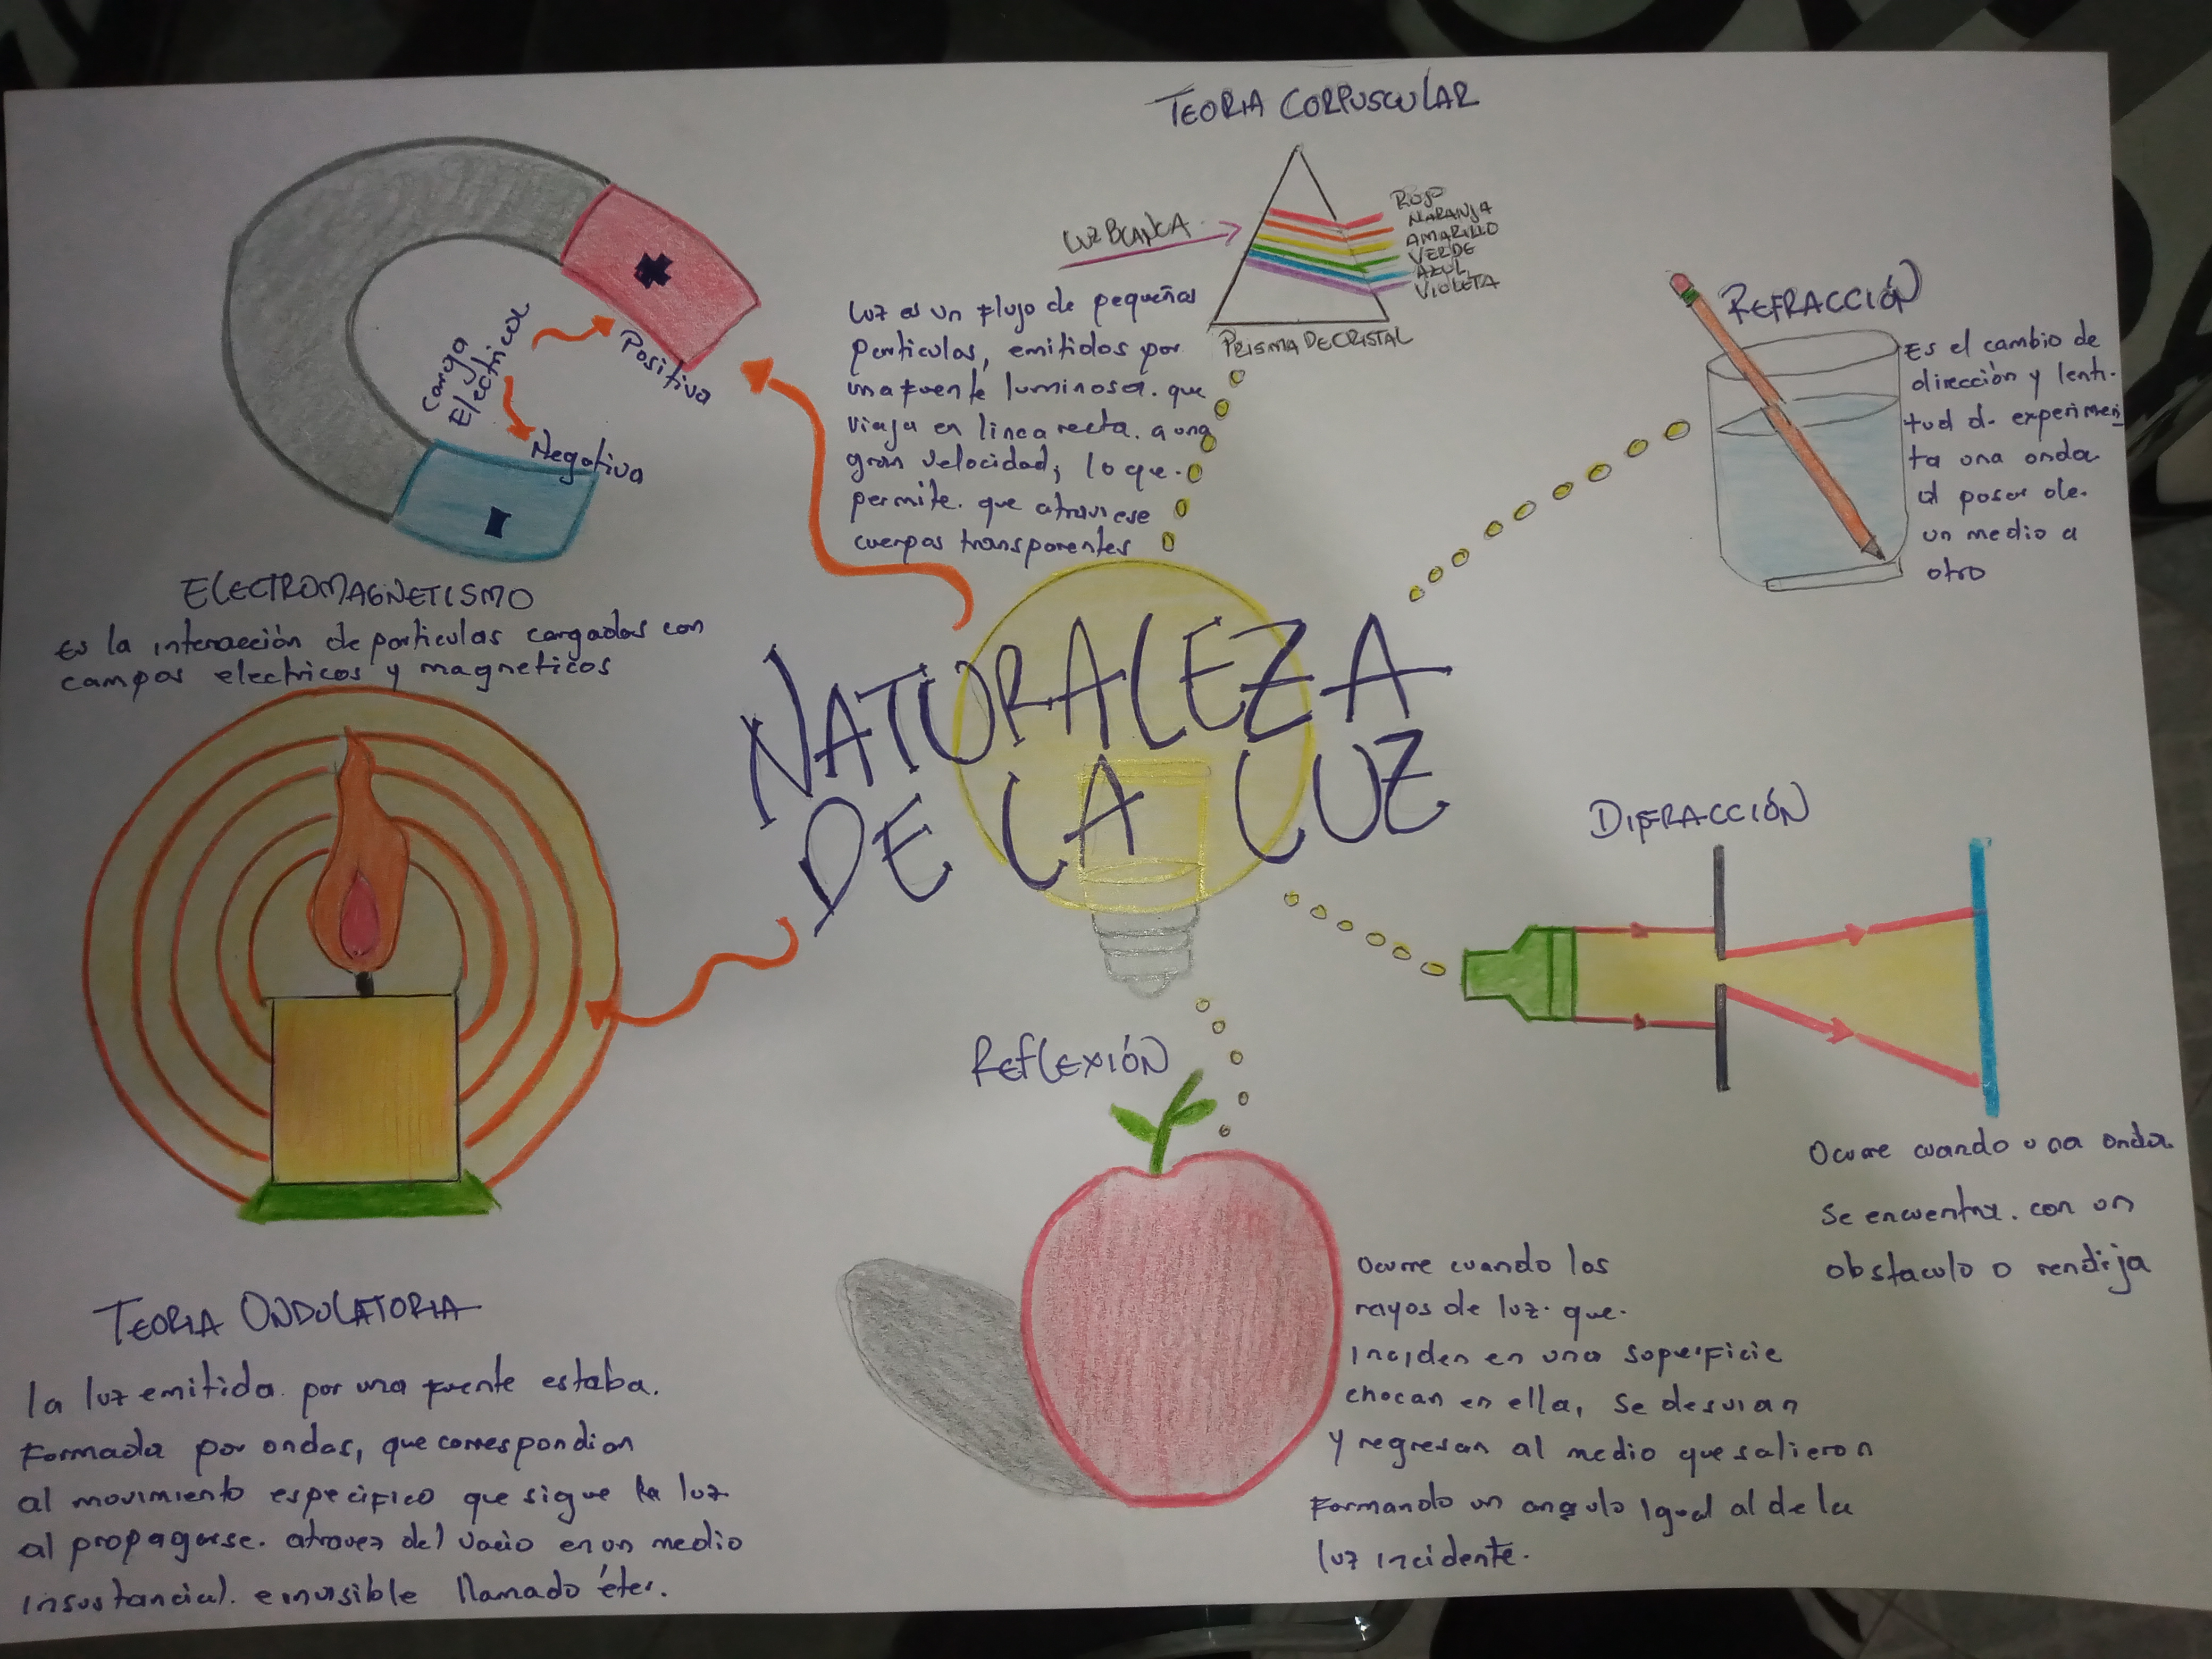 NATURALEZA
DE LA LUZ
TEORIA CORPUSCULAR
LUZ BLANCA
ROJO
NARANJA
AMARILLO
VERDE
AZUL
VIOLETA
PRISMA DE CRISTAL
Luz es un flujo de pequeñas
particulas, emitidos por
una fuente luminosa. que
viaja en linea recta. a una
gran velocidad; lo que.
permite. que atraviese
cuerpos transparentes
REFRACCIÓN
Es el cambio de
dirección y lenti-
tud d. experimen
ta una onda
al pasar de.
un medio a
otro
DIFRACCIÓN
Ocurre cuando una onda
se encuentra. con un
obstaculo o rendija
REFLEXIÓN
Ocurre cuando los
rayos de luz. que.
inciden en una superficie
chocan en ella, se desvian
y regresan al medio que salieron
formando un angulo igual al de la
luz incidente.
Carga
Electrica
Positiva
Negativa
+
-
ELECTROMAGNETISMO
Es la interacción de particulas cargadas con
campos electricos y magneticos
TEORIA ONDULATORIA
la luz emitida. por una fuente estaba.
formada por ondas, que correspondian
al movimiento especifico que sigue la luz
al propagarse. atravez del vacio en un medio
insustancial. e invisible llamado éter.